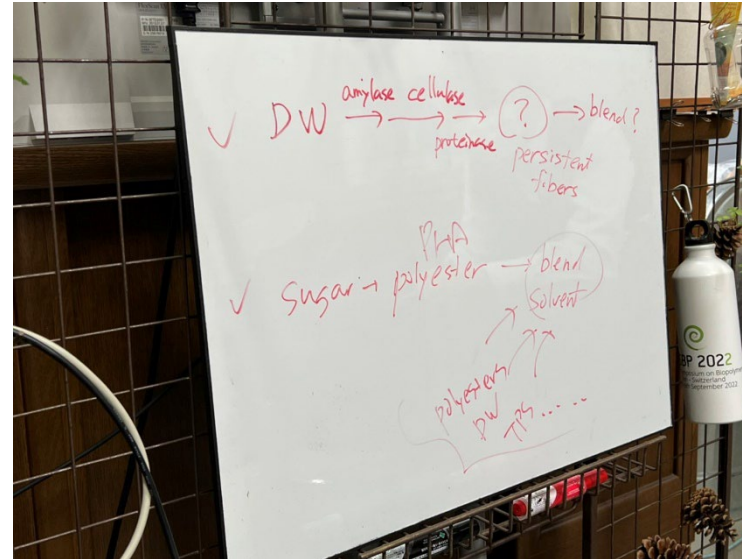 ✓ DW → → → ? → blend?
amylase cellulase
proteinase
persistent
fibers
PHA
✓ Sugar → polyester → blend
solvent
polyesters
DW
TPS .....
BP 2022
posium on Biopolym
- Switzerland
September 2022